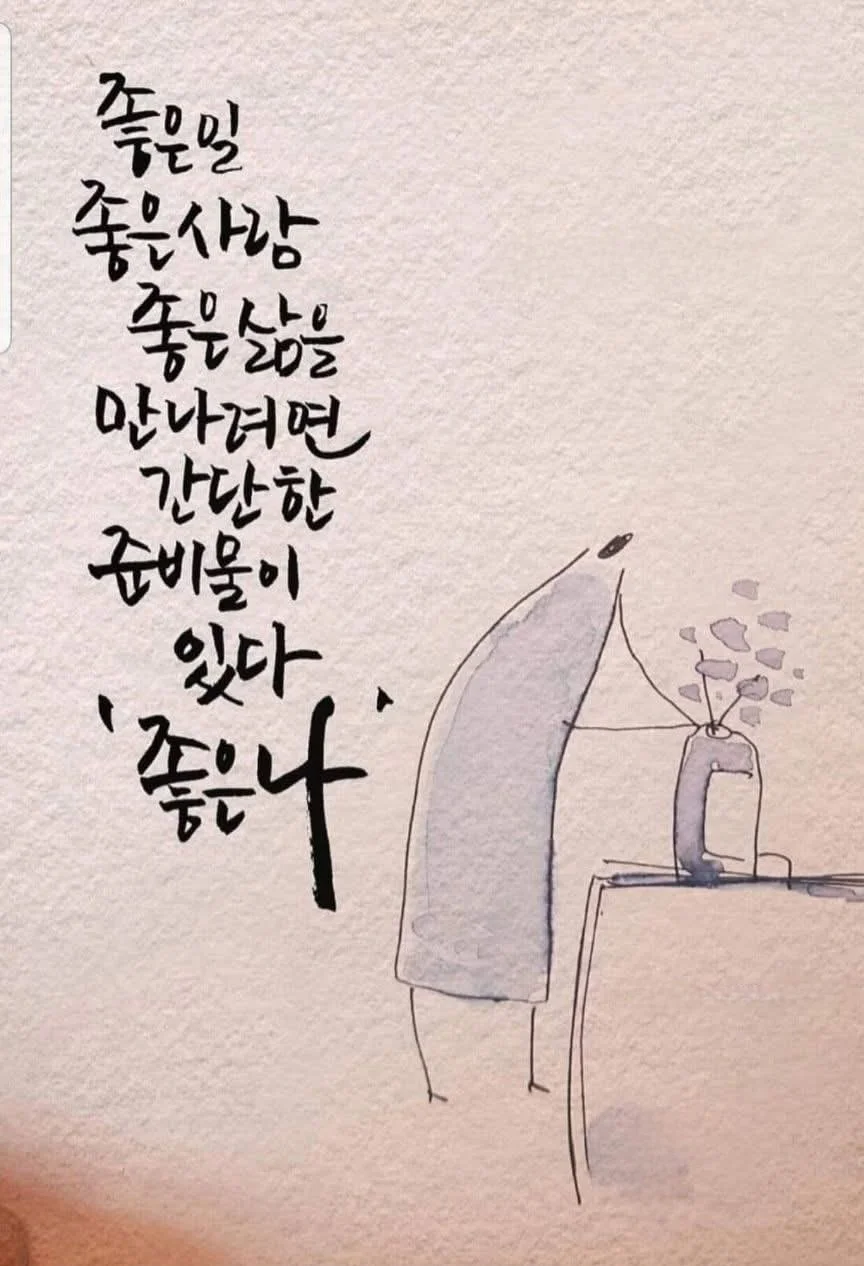 좋은일
좋은사람
좋은삶을
만나려면
간단한
준비물이
있다
'좋은나'